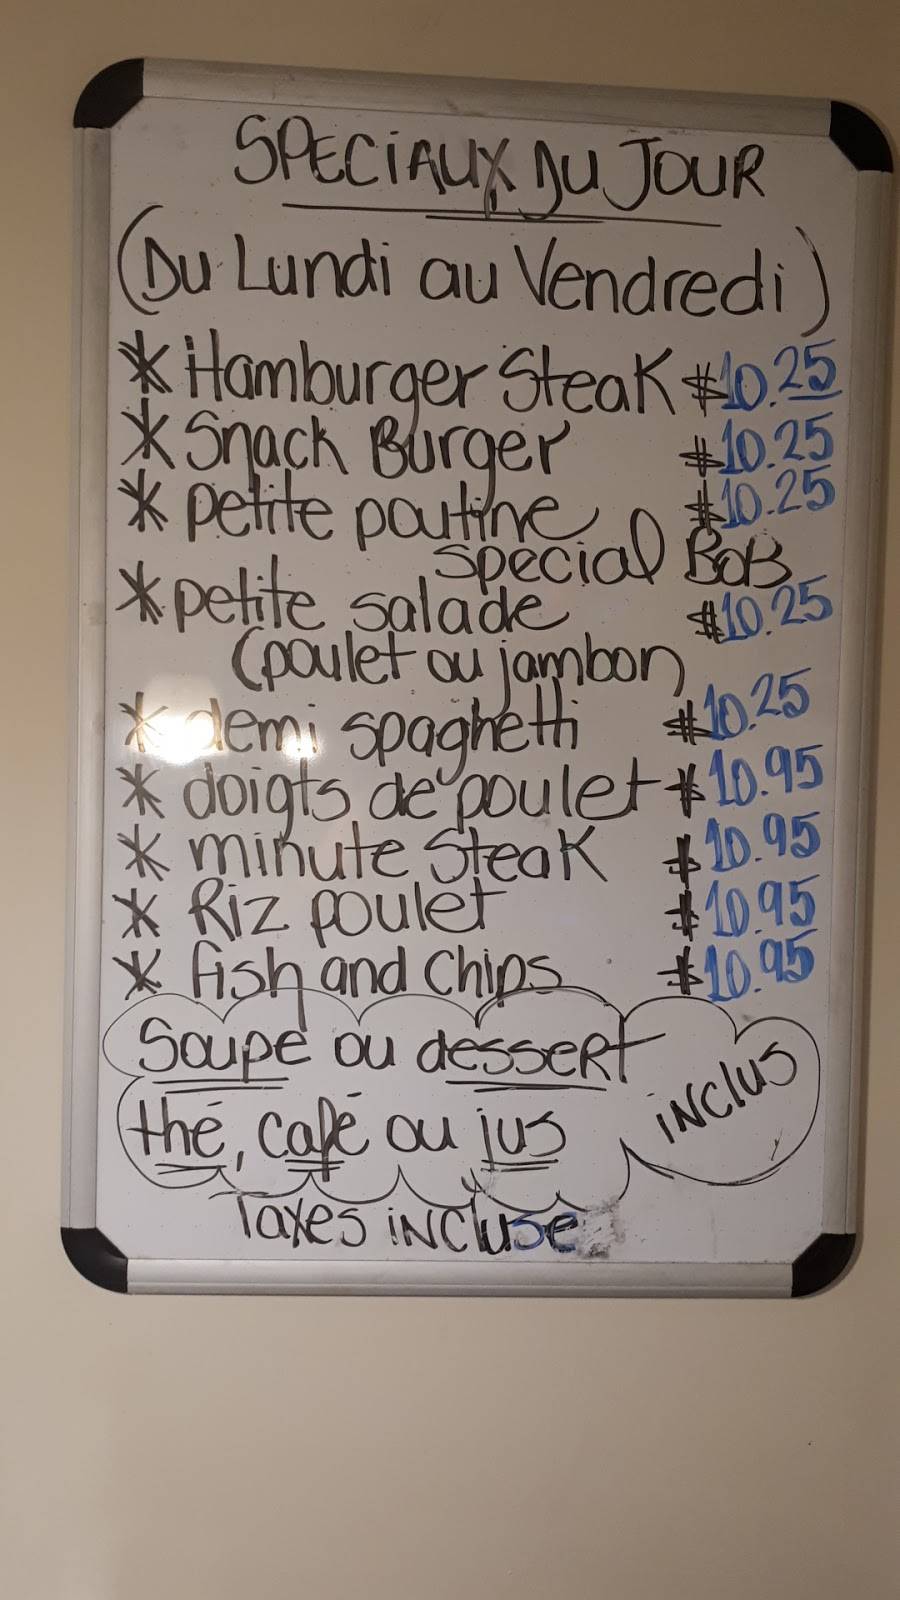 SPECIAUX DU JOUR
(Du Lundi au Vendredi)
* Hamburger Steak $10.25
* Snack Burger $10.25
* petite poutine $10.25
special BoB
* petite salade $10.25
(poulet ou jambon
* demi spaghetti $10.25
* doigts de poulet $10.95
* minute Steak $10.95
* Riz poulet $10.95
* fish and Chips $10.95
Soupe ou dessert
thé, café ou jus inclus
Taxes incluse